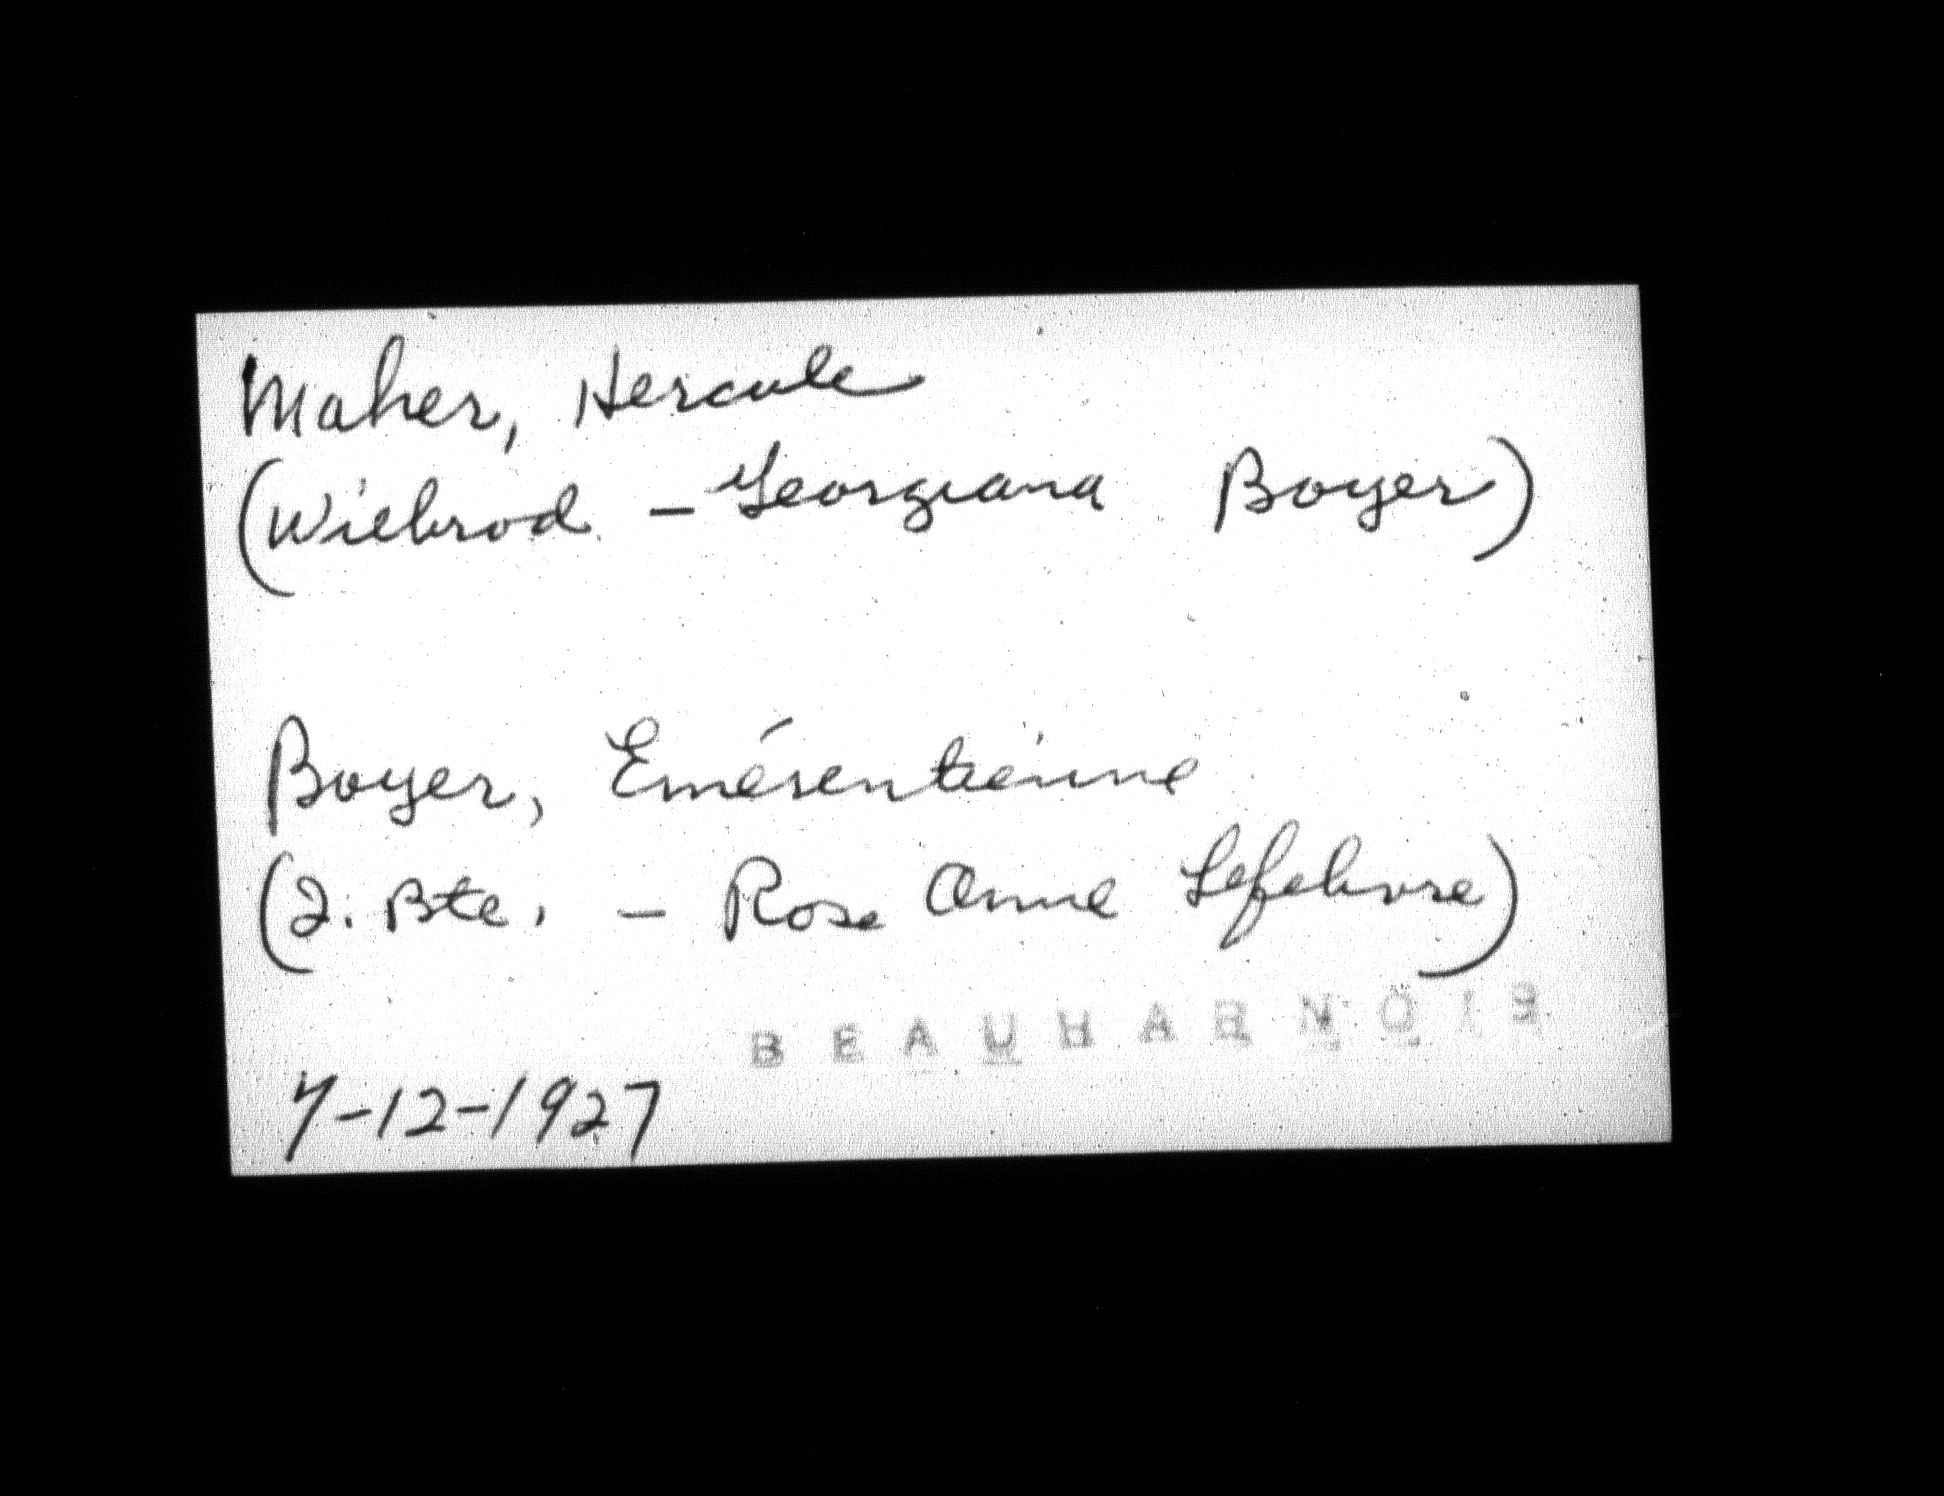 Maher, Hercule
(Wilbrod - Georgiana Boyer)
Boyer, Emérentienne
(J. Bte. - Rose Anne Lefebvre)
BEAUHARNOIS
7-12-1927